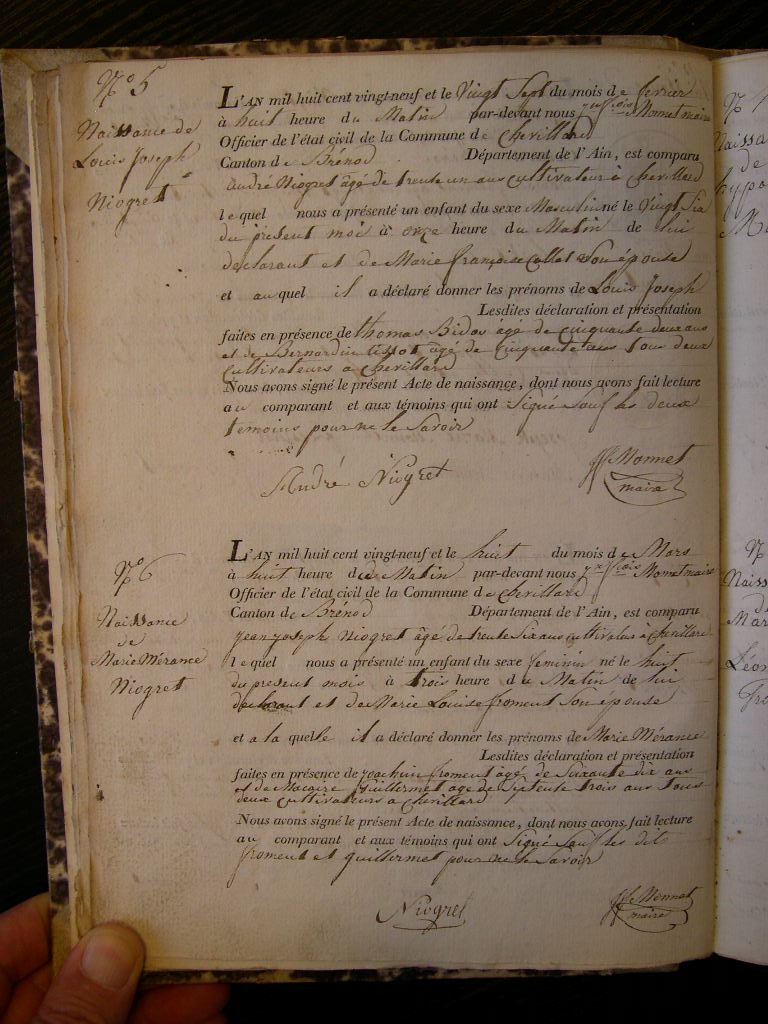 N° 5
Naissance de
Louis Joseph
Niogret
L'AN mil huit cent vingt-neuf et le Vingt Sept du mois de fevrier
à huit heure du Matin par-devant nous Monet maire
Officier de l'état civil de la Commune de Chevillard
Canton de Brénod Département de l'Ain, est comparu
André Niogret âgé de trente un ans cultivateur à Chevillard
lequel nous a présenté un enfant du sexe Masculin né le Vingt Six
du présent moi à onze heure du Matin de lui
declarant et de Marie françoise Collet Son épouse
et auquel il a déclaré donner les prénoms de Louis Joseph
Lesdites déclaration et présentation
faites en présence de thomas Bidos âgé de cinquante deux ans
et de Bernardin tissot âgé de cinquante ans tous deux
Cultivateurs à Chevillard
Nous avons signé le présent Acte de naissance, dont nous avons fait lecture
au comparant et aux témoins qui ont Signé Sauf les deux
temoins pour ne le Savoir
André Niogret
Monnet
maire
N° 6
Naissance
de
Marie Mérance
Niogret
L'AN mil huit cent vingt-neuf et le huit du mois de Mars
à huit heure du Matin par-devant nous Monet maire
Officier de l'état civil de la Commune de Chevillard
Canton de Brénod Département de l'Ain, est comparu
jean joseph Niogret âgé de trente Six ans cultivateur à Chevillard
lequel nous a présenté un enfant du sexe feminin né le huit
du present mois à trois heure du Matin de lui
declarant et de Marie Louise froment Son épouse
et a la quelle il a déclaré donner les prénoms de Marie Mérance
Lesdites déclaration et présentation
faites en présence de joachim froment âgé de Soixante dix ans
et de Macaire Guillermet age de Septente trois ans tous
deux cultivateurs à Chevillard
Nous avons signé le présent Acte de naissance, dont nous avons fait lecture
au comparant et aux témoins qui ont Signé Sauf les dits
froment et guillermet pour ne le Savoir
Niogret
Monnet
maire